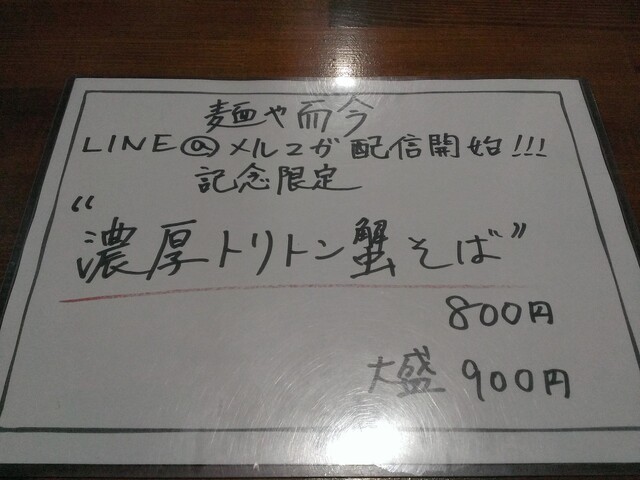 麺や而今
LINE@メルマガ配信開始!!!
記念限定
“濃厚トリトン蟹そば”
800円
大盛 900円